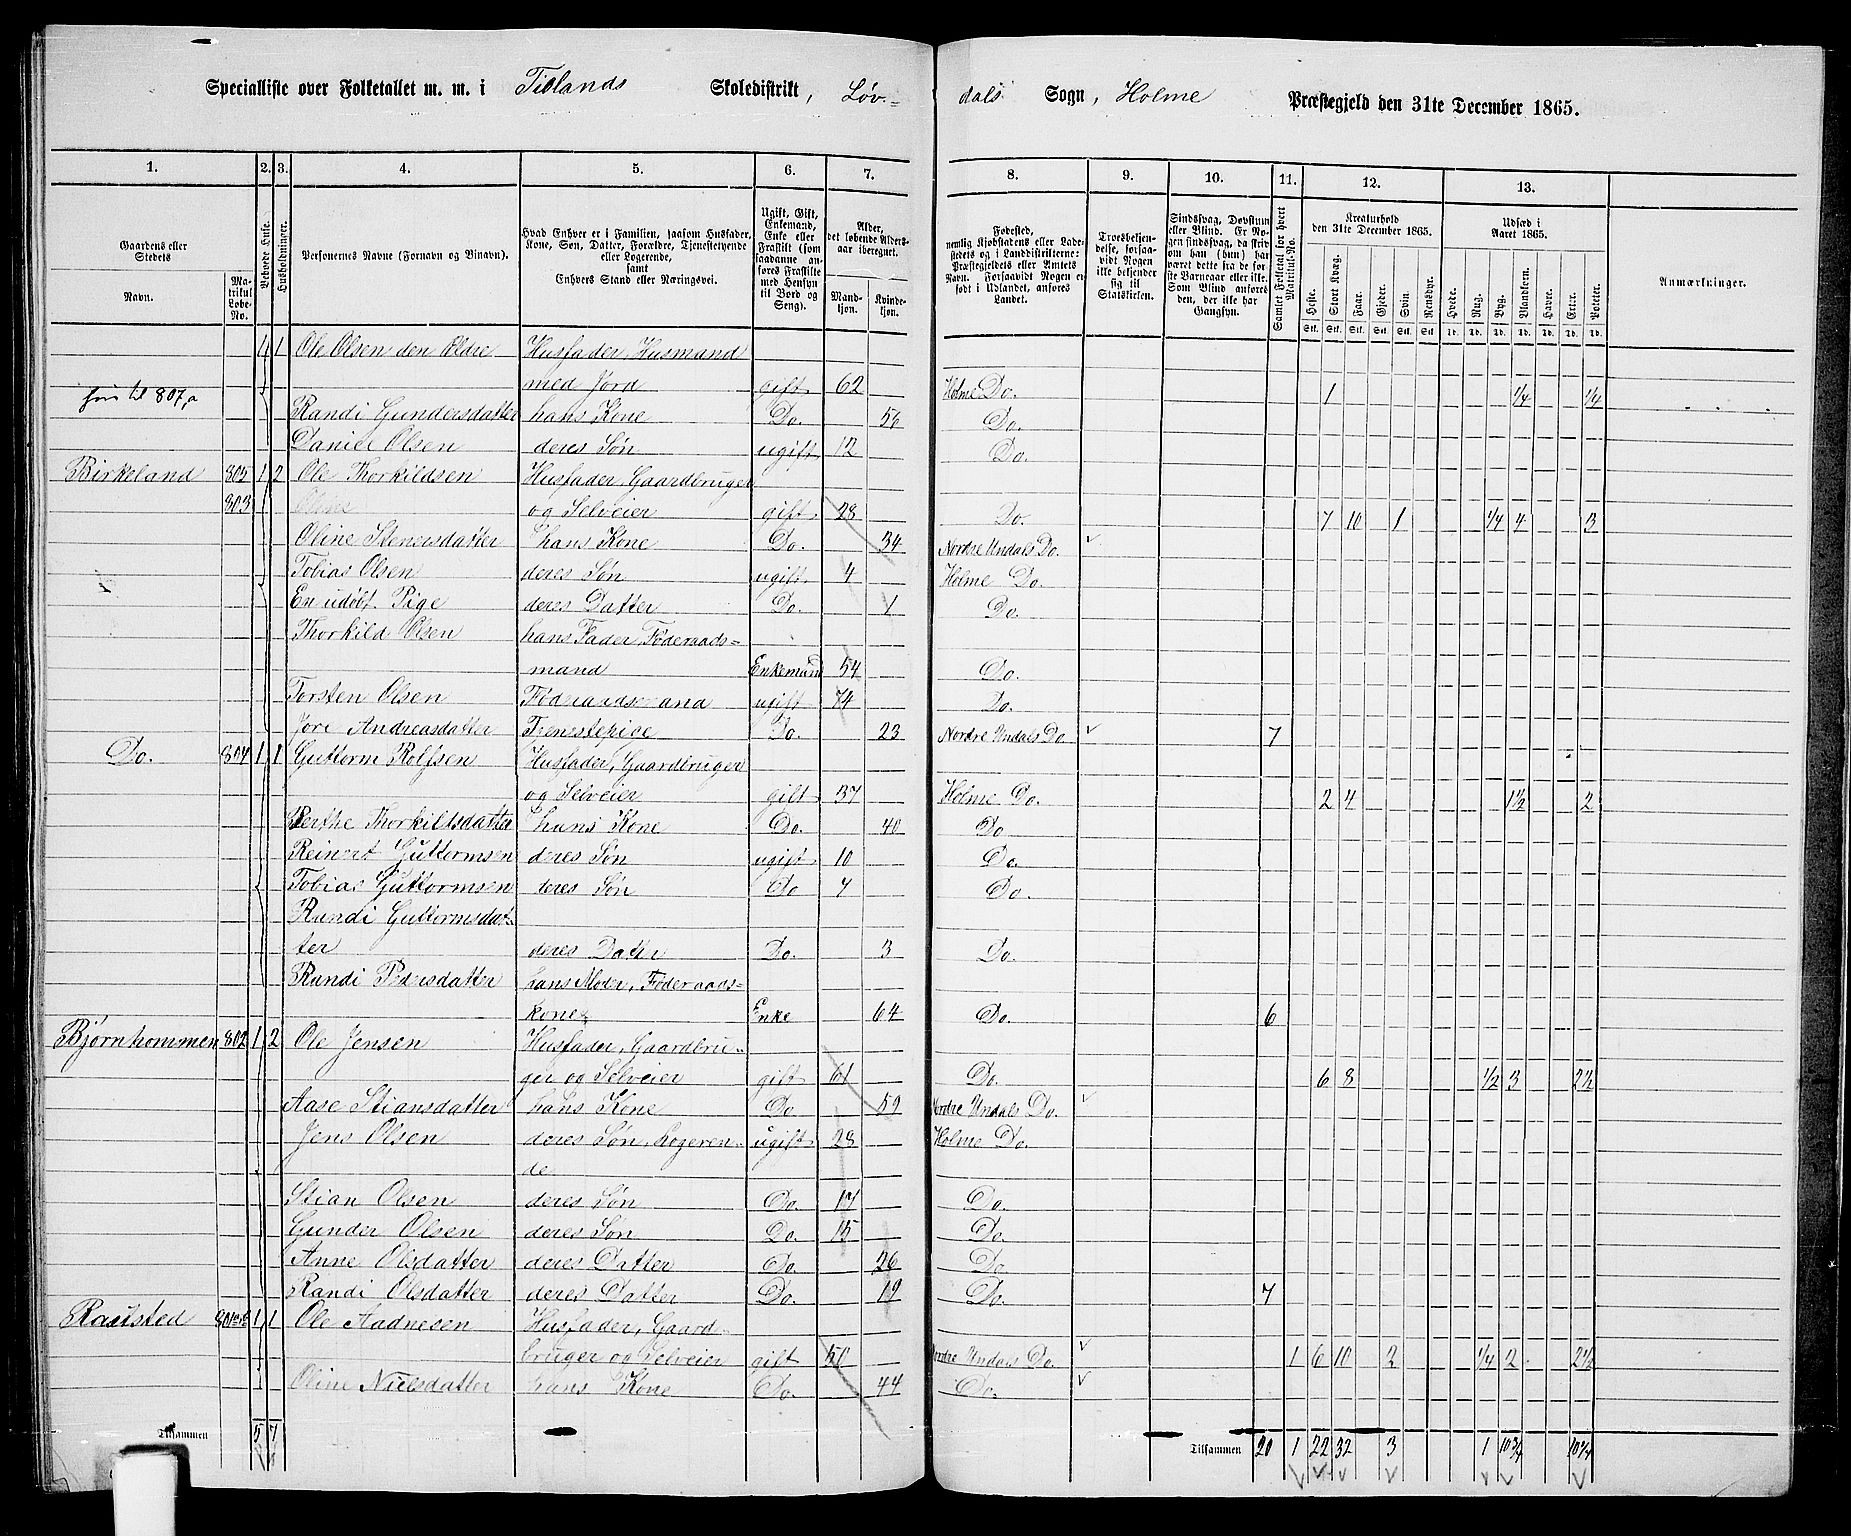 Specialliste over Folketallet m. m. i Tislands Skoledistrikt, Løv-
dals Sogn, Holme Præstegjeld den 31te December 1865.
1. 2. 3. 4. 5. 6. 7. 8. 9. 10. 11. 12. 13.
Gaardens eller Stedets
Navn.
Matrikul Løbe-No.
Beboede Huse.
Husholdninger.
Personernes Navne (Fornavn og Binavn).
Hvad Enhver er i Familien, saasom Husfader, Kone, Søn, Datter, Forældre, Tjenestetyende eller Logerende, samt Enhvers Stand eller Næringsvei.
Ugift, Gift, Enkemand, Enke eller Fraskilt (saadanne anføres Fraskilte med Hensyn til Bord og Seng).
Alder, det løbende Aldersaar iberegnet.
Mandkjøn. Kvindekjøn.
Fødested, nemlig Kjøbstadens eller Ladestedets og i Landdistrikterne: Præstegjeldets eller Amtets Navn. Forsaavidt Nogen er født i Udlandet, anføres Landet.
Troesbekjendelse, forsaavidt Nogen ikke bekjender sig til Statskirken.
Sindssvag, Døvstum eller Blind. Er Nogen sindssvag, da skrives om han (hun) har været dette fra de første Barneaar eller ikke. Som Blind anføres den, der ikke har Gangsyn.
Samlet Folketal for hvert Matrikul-No.
Kreaturhold den 31te December 1865.
Heste. Stort Kvæg. Faar. Gjeder. Svin. Rensdyr.
Udsæd i Aaret 1865.
Hvede. Rug. Byg. Blandkorn. Havre. Erter. Poteter.
Anmærkninger.
1 1 Ole Olsen den Ældre Husfader, Husmand
hører til 807,a med Jord gift 62 Holme Do. 1 1/4 1/4
Randi Gundersdatter hans Kone Do. 56 Do.
Daniel Olsen deres Søn ugift 12 Do.
Birkeland 805 1 2 Ole Thorkildsen Husfader, Gaardbruger
803 og Selveier gift 28 Do. 7 10 1 1/4 4 3
Oline Stenersdatter hans Kone Do. 34 Nordre Undals Do.
Tobias Olsen deres Søn ugift 4 Holme Do.
En udøbt Pige deres Datter Do. 1 Do.
Thorkild Olsen hans Fader, Føderaads-
mand Enkemand 54 Do.
Torsten Olsen Føderaadsmand ugift 74 Do.
Jore Andreasdatter Tjenestepige Do. 23 Nordre Undals Do. 7
Do. 804 1 1 Guttorm Rolfsen Husfader, Gaardbruger
og Selveier gift 37 Holme Do. 2 4 1 1/2 2
Berthe Thorkildsdatter hans Kone Do. 40 Do.
Reinert Guttormsen deres Søn ugift 10 Do.
Tobias Guttormsen deres Søn Do 7 Do.
Randi Guttormsdat-
ter deres Datter Do. 3 Do.
Randi Pedersdatter hans Moder, Føderaads-
kone Enke 64 Do. 6
Bjørnhommen 802 1 2 Ole Jensen Husfader, Gaardbru-
ger og Selveier gift 61 Do. 6 8 1/2 3 2 1/2
Aase Stiansdatter hans Kone Do. 59 Nordre Undals Do.
Jens Olsen deres Søn, Logeren- ugift 28 Holme Do.
de
Stian Olsen deres Søn Do. 17 Do.
Gunder Olsen deres Søn Do. 15 Do.
Anne Olsdatter deres Datter Do. 26 Do.
Randi Olsdatter deres Datter Do. 19 Do. 7
1 1 Ole Aadnesen Husfader, Gaard-
bruger og Selveier gift 50 Nordre Undals Do. 1 6 10 2 1/4 2 2 1/2
Oline Nielsdatter hans Kone Do. 44 Do.
Tilsammen 5 7 Tilsammen 20 1 22 32 3 1 10 3/4 10 1/4